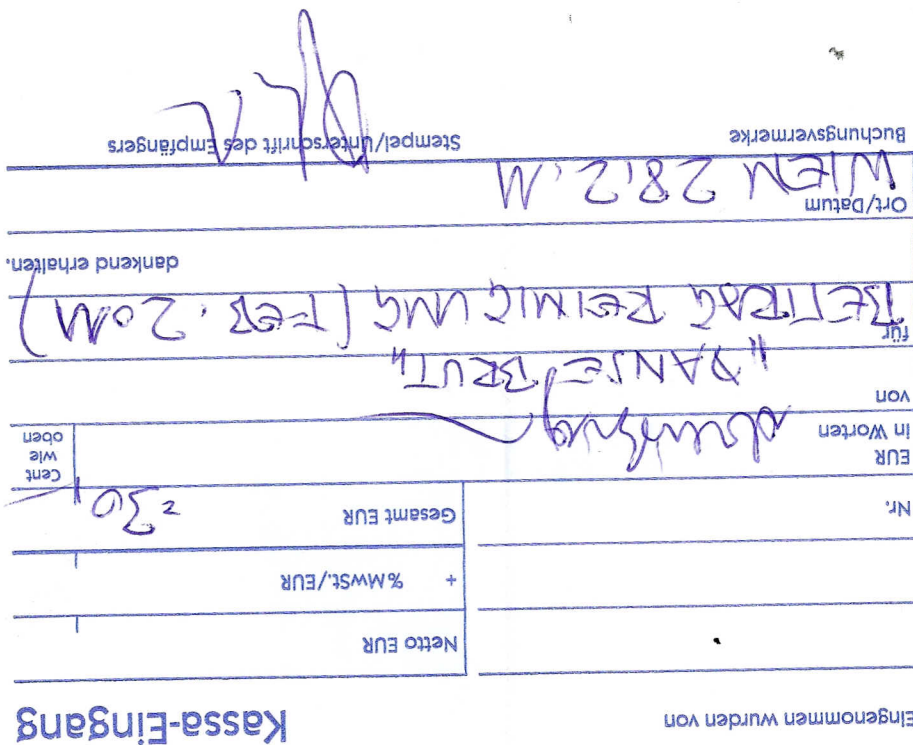 Eingenommen wurden von
Kassa-Eingang
Netto EUR
+ % MwSt./EUR
Nr.
Gesamt EUR
=30
EUR
in Worten
dreißig
Cent
wie
oben
von
„DANSE BRUT"
für
BEITRAG REINIGUNG (FEB. 2011)
dankend erhalten.
Ort/Datum
WIEN 28.2.11
Buchungsvermerke
Stempel/Unterschrift des Empfängers